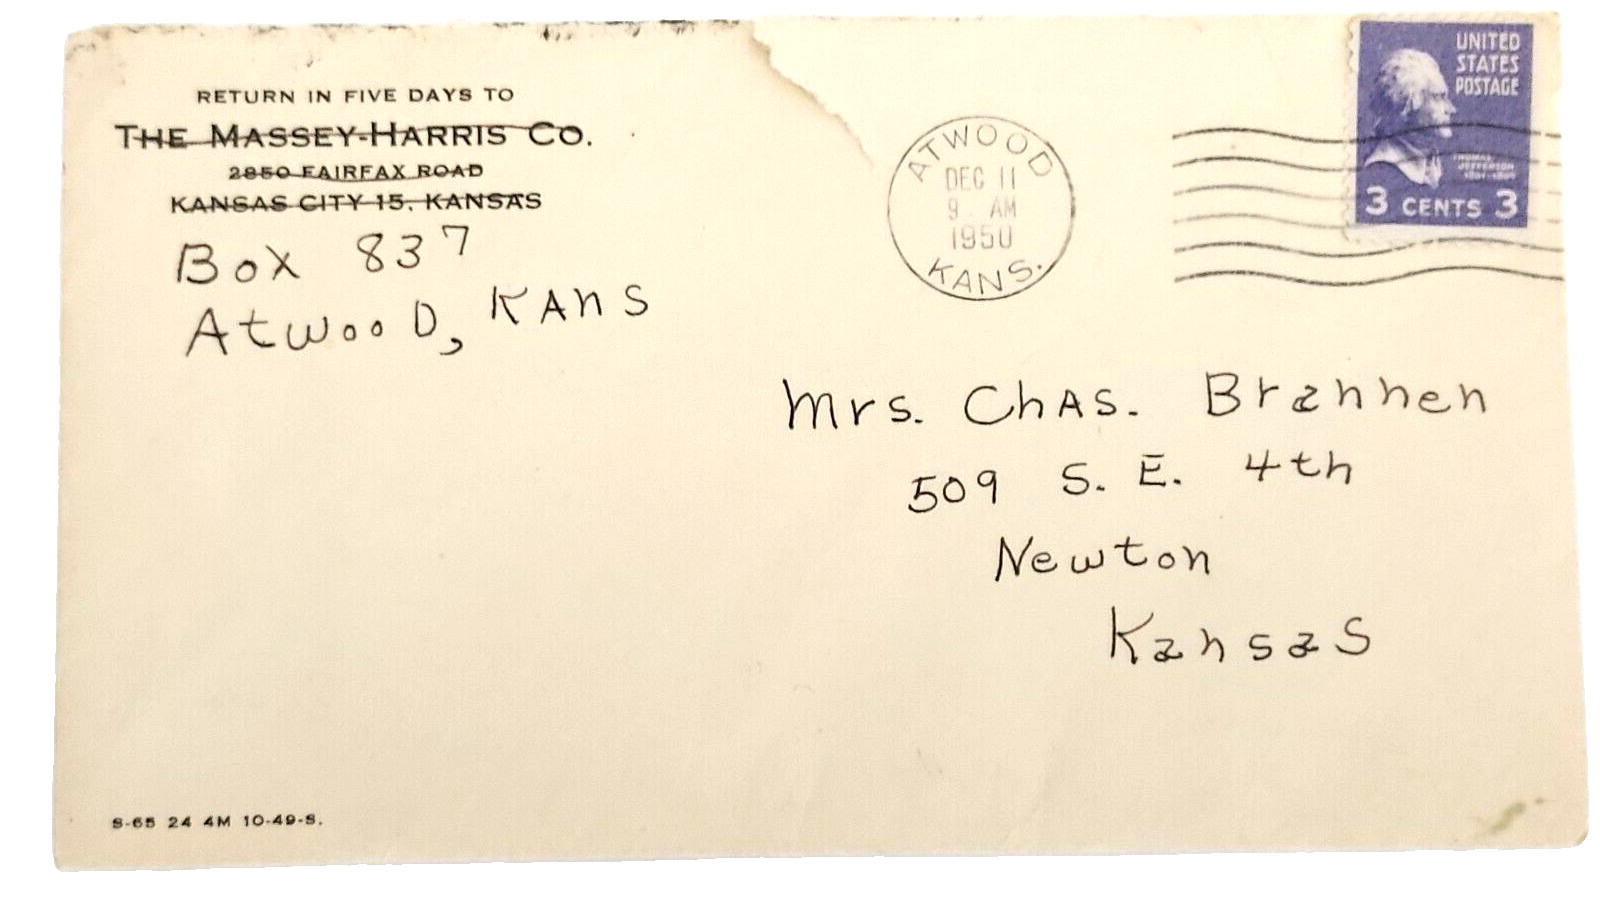 RETURN IN FIVE DAYS TO
THE MASSEY-HARRIS CO.
2850 FAIRFAX ROAD
KANSAS CITY 15, KANSAS
Box 837
Atwood, KAnS
ATWOOD
DEC 11
9 AM
1950
KANS.
UNITED
STATES
POSTAGE
THOMAS
JEFFERSON
3 CENTS 3
Mrs. ChAs. Brannen
509 S. E. 4th
Newton
Kansas
S-65 24 4M 10-49-S.